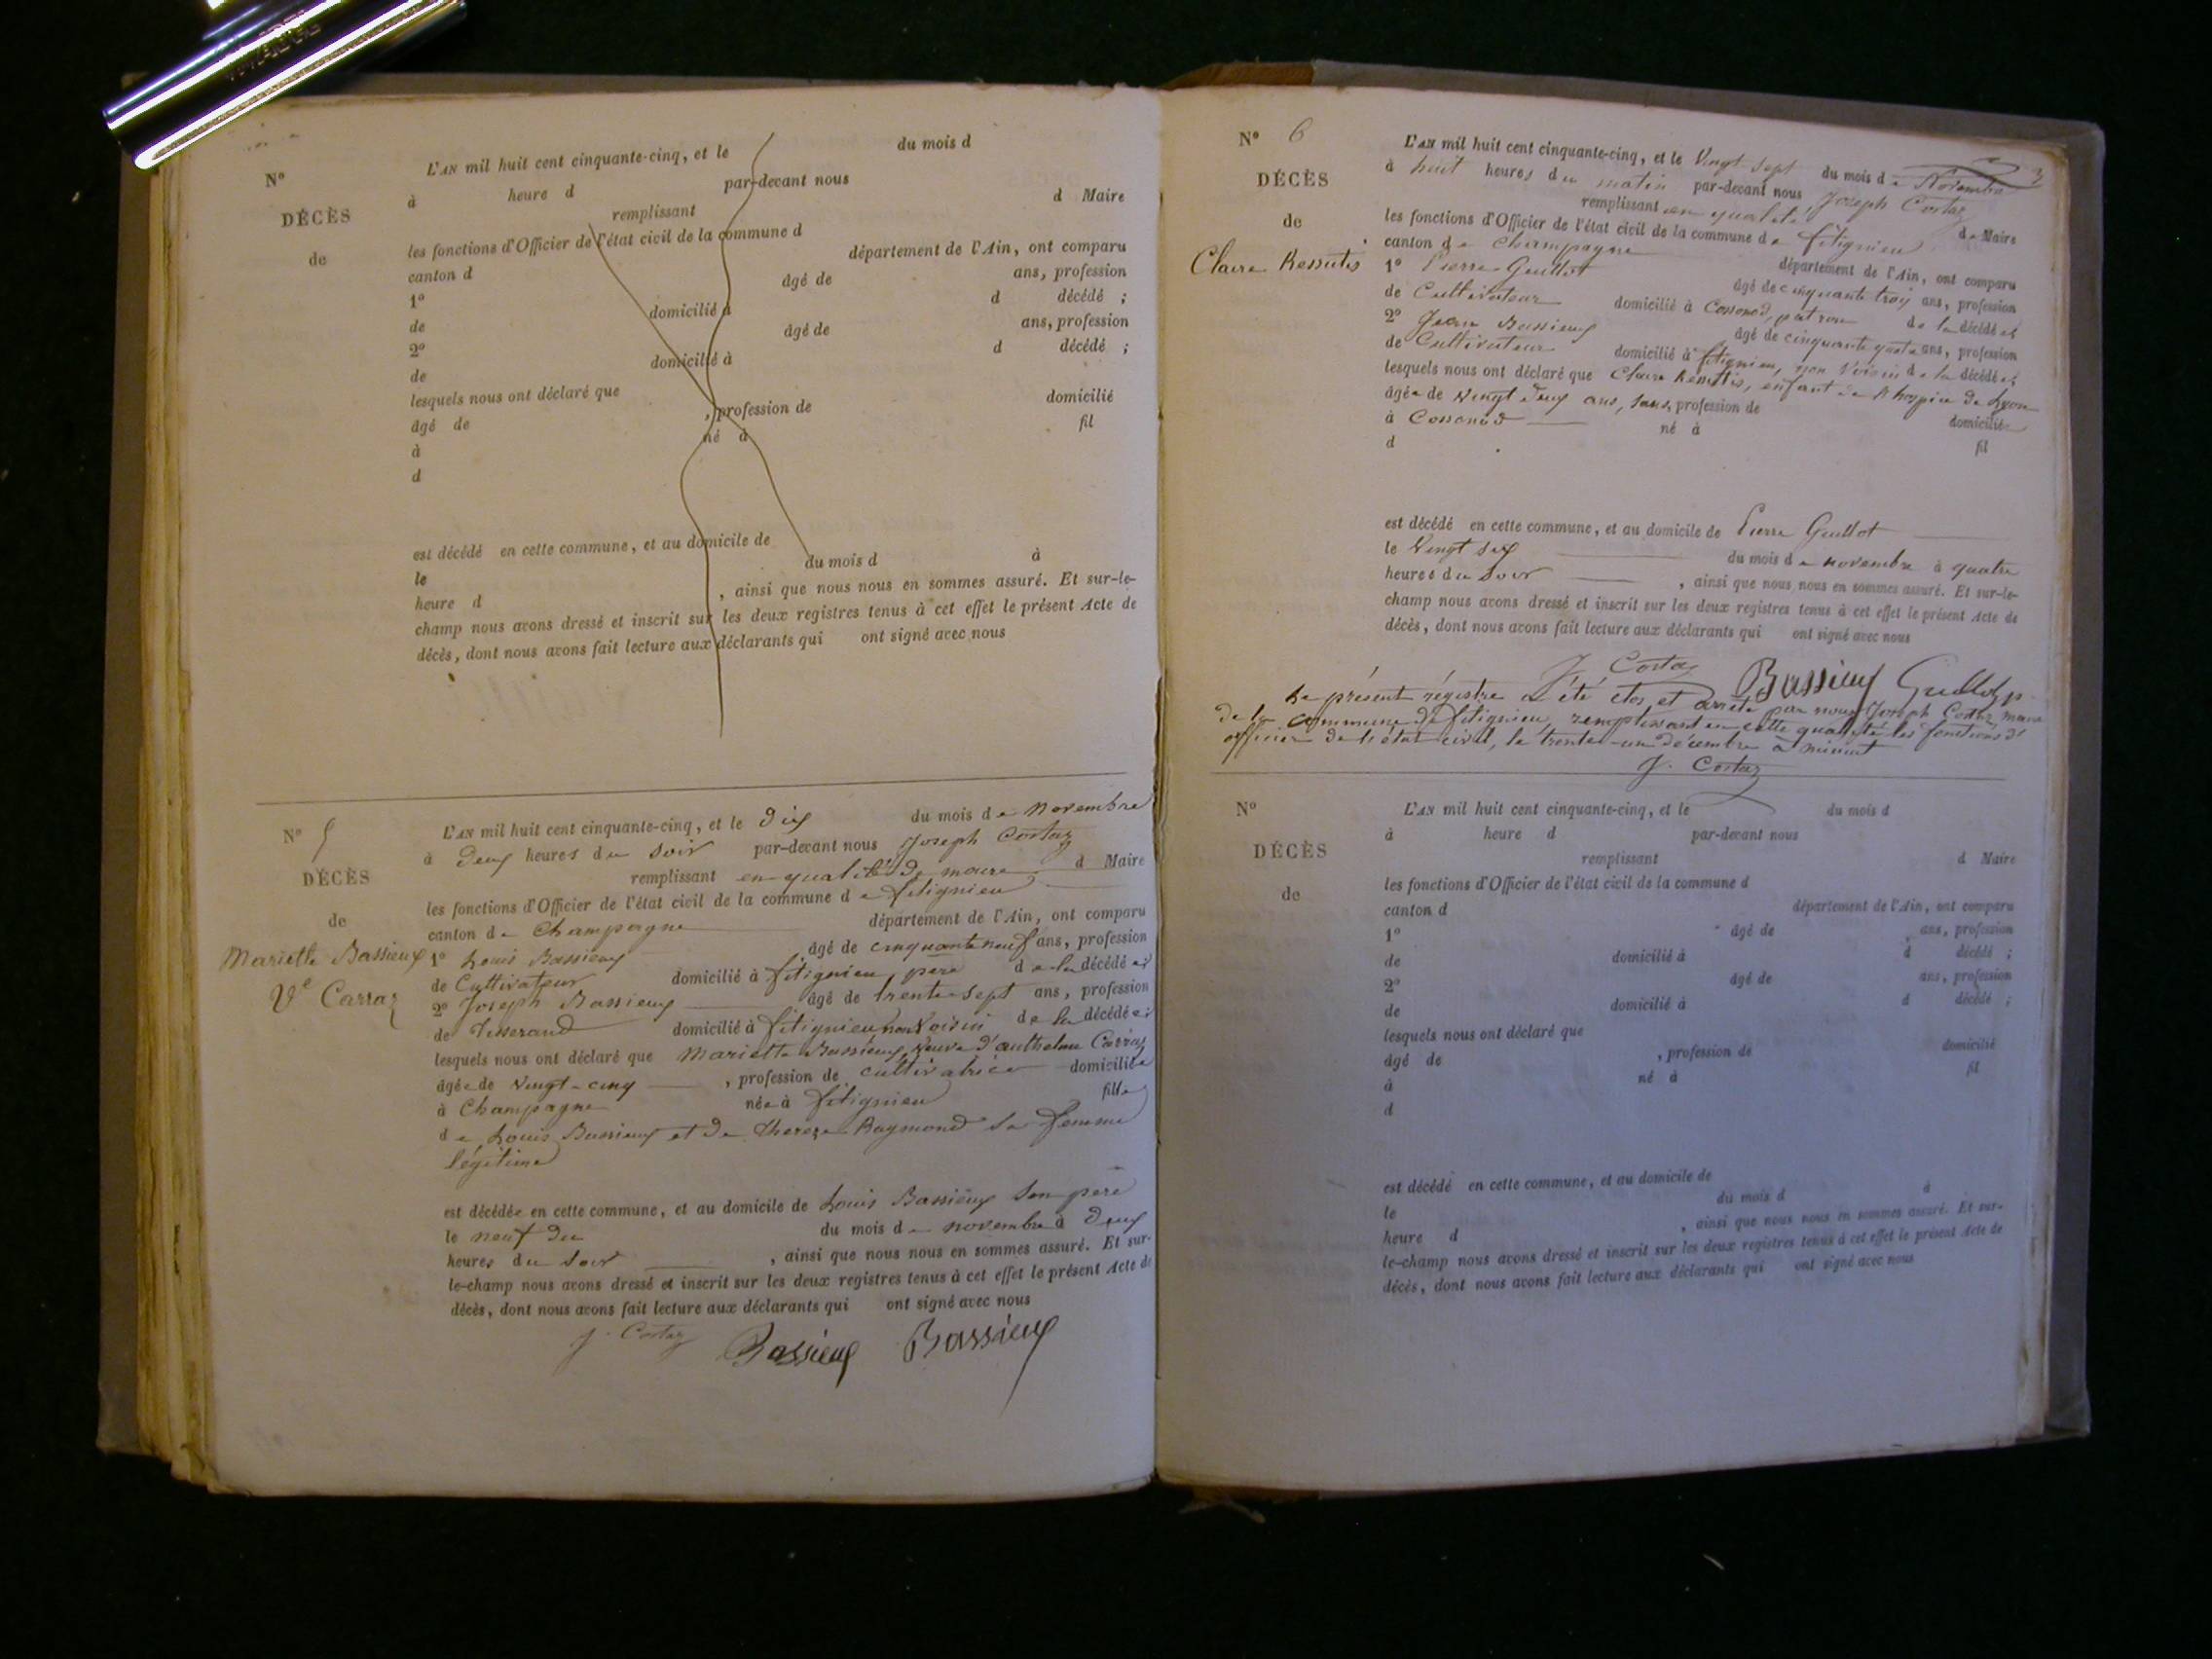 L'AN mil huit cent cinquante-cinq, et le du mois d
N° à heure d par-devant nous
DÉCÈS remplissant d Maire
de les fonctions d'Officier de l'état civil de la commune d
canton d département de l'Ain, ont comparu
1° âgé de ans, profession
de domicilié à d décédé ;
2° âgé de ans, profession
de domicilié à d décédé ;
lesquels nous ont déclaré que
âgé de , profession de domicilié
à né à fil
d
est décédé en cette commune, et au domicile de
le du mois d à
heure d , ainsi que nous nous en sommes assuré. Et sur-le-
champ nous avons dressé et inscrit sur les deux registres tenus à cet effet le présent Acte de
décès, dont nous avons fait lecture aux déclarants qui ont signé avec nous
N° 5 L'AN mil huit cent cinquante-cinq, et le dix du mois de novembre
à deux heures du soir par-devant nous Joseph Costaz
DÉCÈS remplissant en qualité de maire d Maire
de les fonctions d'Officier de l'état civil de la commune de fitignieu
canton de Champagne département de l'Ain, ont comparu
Mariette Bassieux 1° Louis Bassieux âgé de cinquante neuf ans, profession
Ve Carraz de Cultivateur domicilié à fitignieu, père de la décédée;
2° Joseph Bassieux âgé de trente sept ans, profession
de Tisserand domicilié à fitignieu non Voisin de la décédée;
lesquels nous ont déclaré que Mariette Bassieux, Veuve d'anthelme Carraz
âgée de Vingt-cinq , profession de cultivatrice domiciliée
à Champagne née à fitignieu fille
de Louis Bassieux et de Thereze Raymond sa femme
légitime
est décédée en cette commune, et au domicile de Louis Bassieux son père
le neuf du du mois de novembre à deux
heures du soir , ainsi que nous nous en sommes assuré. Et sur-
le-champ nous avons dressé et inscrit sur les deux registres tenus à cet effet le présent Acte de
décès, dont nous avons fait lecture aux déclarants qui ont signé avec nous
J. Costaz Bassieux Bassieux
N° 6 L'AN mil huit cent cinquante-cinq, et le Vingt-sept du mois de Novembre
à huit heures du matin par-devant nous Joseph Costaz
DÉCÈS remplissant en qualité de Maire
de les fonctions d'Officier de l'état civil de la commune de fitignieu
canton de Champagne département de l'Ain, ont comparu
Claire 1° Pierre Guillot âgé de cinquante trois ans, profession
de Cultivateur domicilié à Cossonod, patron de la décédée;
2° Jean Bassieux âgé de cinquante quatre ans, profession
de Cultivateur domicilié à fitignieu, non Voisin de la décédée;
lesquels nous ont déclaré que Claire enfant de l'hospice de Lyon
âgée de Vingt deux ans, sans, profession de domiciliée
à Cossonod né à fil
d
est décédé en cette commune, et au domicile de Pierre Guillot
le Vingt six du mois de novembre à quatre
heures du Soir , ainsi que nous nous en sommes assuré. Et sur-le-
champ nous avons dressé et inscrit sur les deux registres tenus à cet effet le présent Acte de
décès, dont nous avons fait lecture aux déclarants qui ont signé avec nous
J. Costaz Bassieux Guillot p
Le présent régistre a été clos et arrêté par nous Joseph Costaz, maire
de la commune de fitignieu, remplissant en cette qualité les fonctions d'
officier de l'état civil, le trente-un décembre à minuit
J. Costaz
N° L'AN mil huit cent cinquante-cinq, et le du mois d
à heure d par-devant nous
DÉCÈS remplissant d Maire
de les fonctions d'Officier de l'état civil de la commune d
canton d département de l'Ain, ont comparu
1° âgé de ans, profession
de domicilié à d décédé ;
2° âgé de ans, profession
de domicilié à d décédé ;
lesquels nous ont déclaré que
âgé de , profession de domicilié
à né à fil
d
est décédé en cette commune, et au domicile de
le du mois d à
heure d , ainsi que nous nous en sommes assuré. Et sur-
le-champ nous avons dressé et inscrit sur les deux registres tenus à cet effet le présent Acte de
décès, dont nous avons fait lecture aux déclarants qui ont signé avec nous